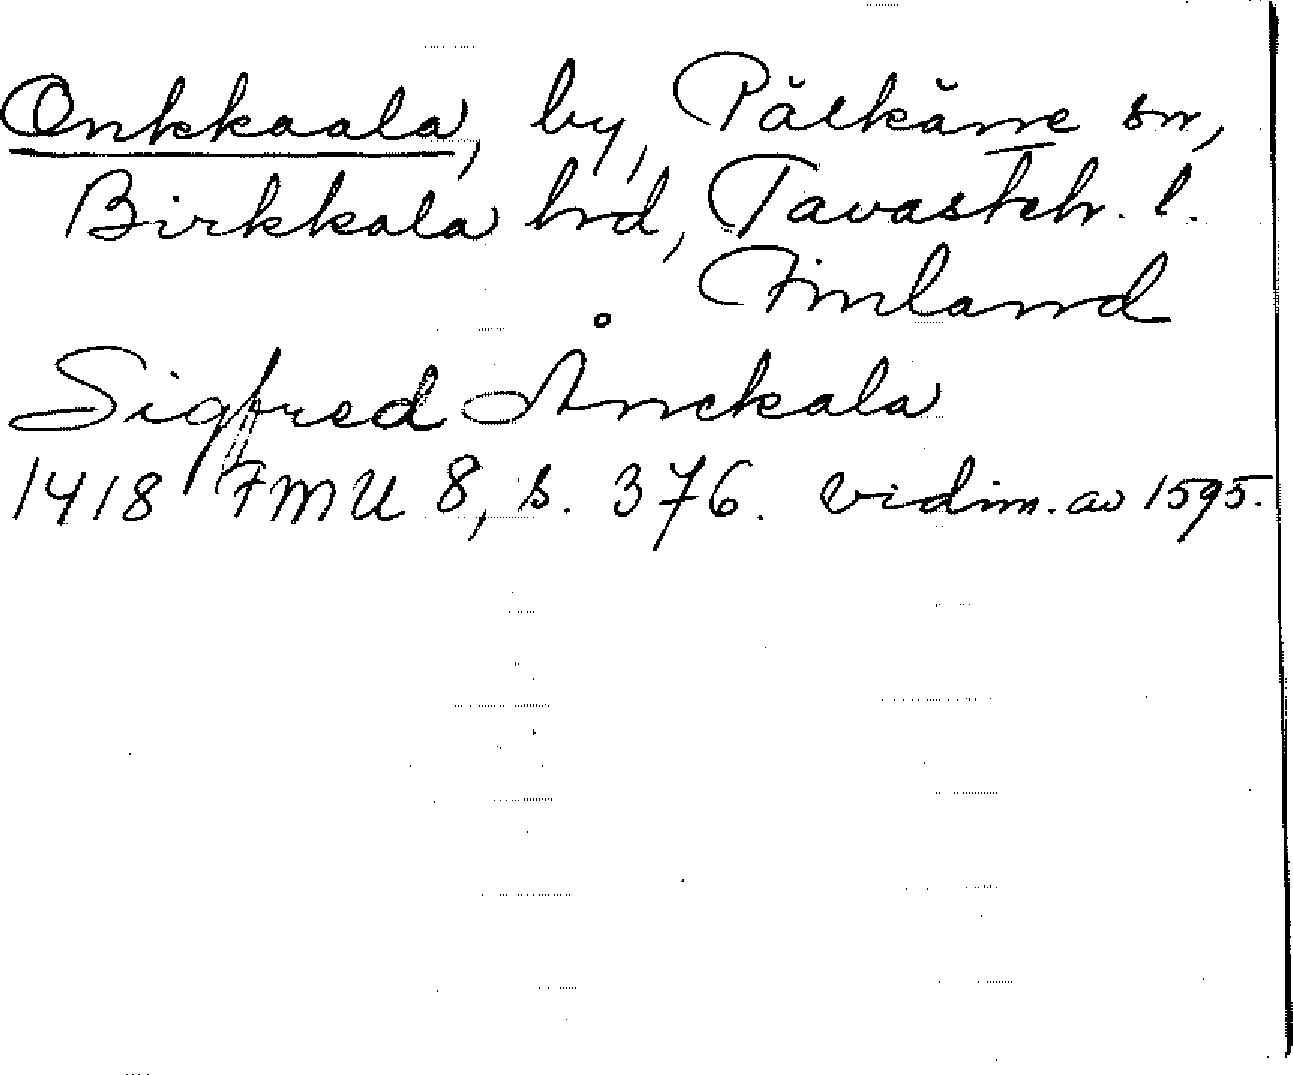 Onkkaala, by, Pälkäne sn,
Birkkala hd, Tavasteh. l.
Finland
Sigfred Ånckala
1418 FMU 8, s. 376. vidim. av 1595.